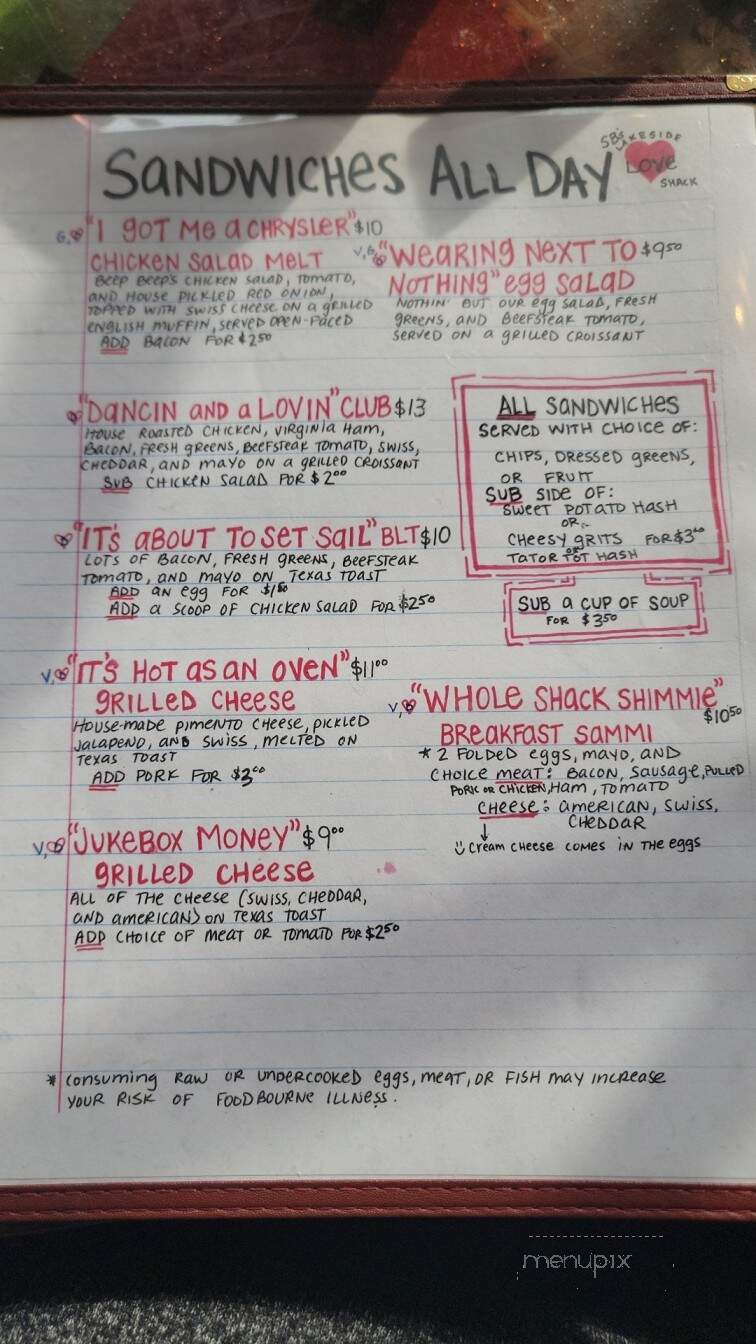 SANDWICHES ALL DAY
SB's LAKESIDE
LOVE
SHACK
G, "I GOT ME A CHRYSLER" $10
CHICKEN SALAD MELT
BEEP BEEP'S CHICKEN SALAD, TOMATO,
AND HOUSE PICKLED RED ONION,
TOPPED WITH SWISS CHEESE ON A GRILLED
ENGLISH MUFFIN, SERVED OPEN-FACED
ADD BACON FOR $2.50
V, G, "WEARING NEXT TO $9.50
NOTHING" EGG SALAD
NOTHIN' BUT OUR EGG SALAD, FRESH
GREENS, AND BEEFSTEAK TOMATO,
SERVED ON A GRILLED CROISSANT
"DANCIN AND A LOVIN" CLUB $13
HOUSE ROASTED CHICKEN, VIRGINIA HAM,
BACON, FRESH GREENS, BEEFSTEAK TOMATO, SWISS,
CHEDDAR, AND MAYO ON A GRILLED CROISSANT
SUB CHICKEN SALAD FOR $2.00
ALL SANDWICHES
SERVED WITH CHOICE OF:
CHIPS, DRESSED GREENS,
OR FRUIT
SUB SIDE OF:
SWEET POTATO HASH
OR
CHEESY GRITS FOR $3.00
OR
TATOR TOT HASH
SUB A CUP OF SOUP
FOR $3.50
"IT'S ABOUT TO SET SAIL" BLT $10
LOTS OF BACON, FRESH GREENS, BEEFSTEAK
TOMATO, AND MAYO ON TEXAS TOAST
ADD AN EGG FOR $1.50
ADD A SCOOP OF CHICKEN SALAD FOR $2.50
V, "IT'S HOT AS AN OVEN" $11.00
GRILLED CHEESE
HOUSE-MADE PIMENTO CHEESE, PICKLED
JALAPENO, AND SWISS, MELTED ON
TEXAS TOAST
ADD PORK FOR $3.00
V, "WHOLE SHACK SHIMMIE"
$10.50
BREAKFAST SAMMI
* 2 FOLDED EGGS, MAYO, AND
CHOICE MEAT: BACON, SAUSAGE, PULLED
PORK OR CHICKEN, HAM, TOMATO
CHEESE: AMERICAN, SWISS,
CHEDDAR
CREAM CHEESE COMES IN THE EGGS
V, "JUKEBOX MONEY" $9.00
GRILLED CHEESE
ALL OF THE CHEESE (SWISS, CHEDDAR,
AND AMERICAN) ON TEXAS TOAST
ADD CHOICE OF MEAT OR TOMATO FOR $2.50
* CONSUMING RAW OR UNDERCOOKED EGGS, MEAT, OR FISH MAY INCREASE
YOUR RISK OF FOODBOURNE ILLNESS.
menupix